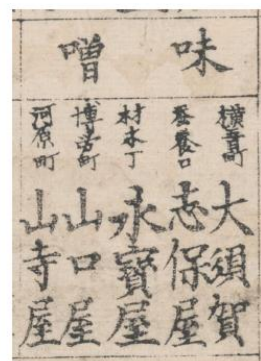 味噌
大須賀
蚕養口
志保屋
材木丁
永寶屋
博労町
山口屋
河原町
山寺屋